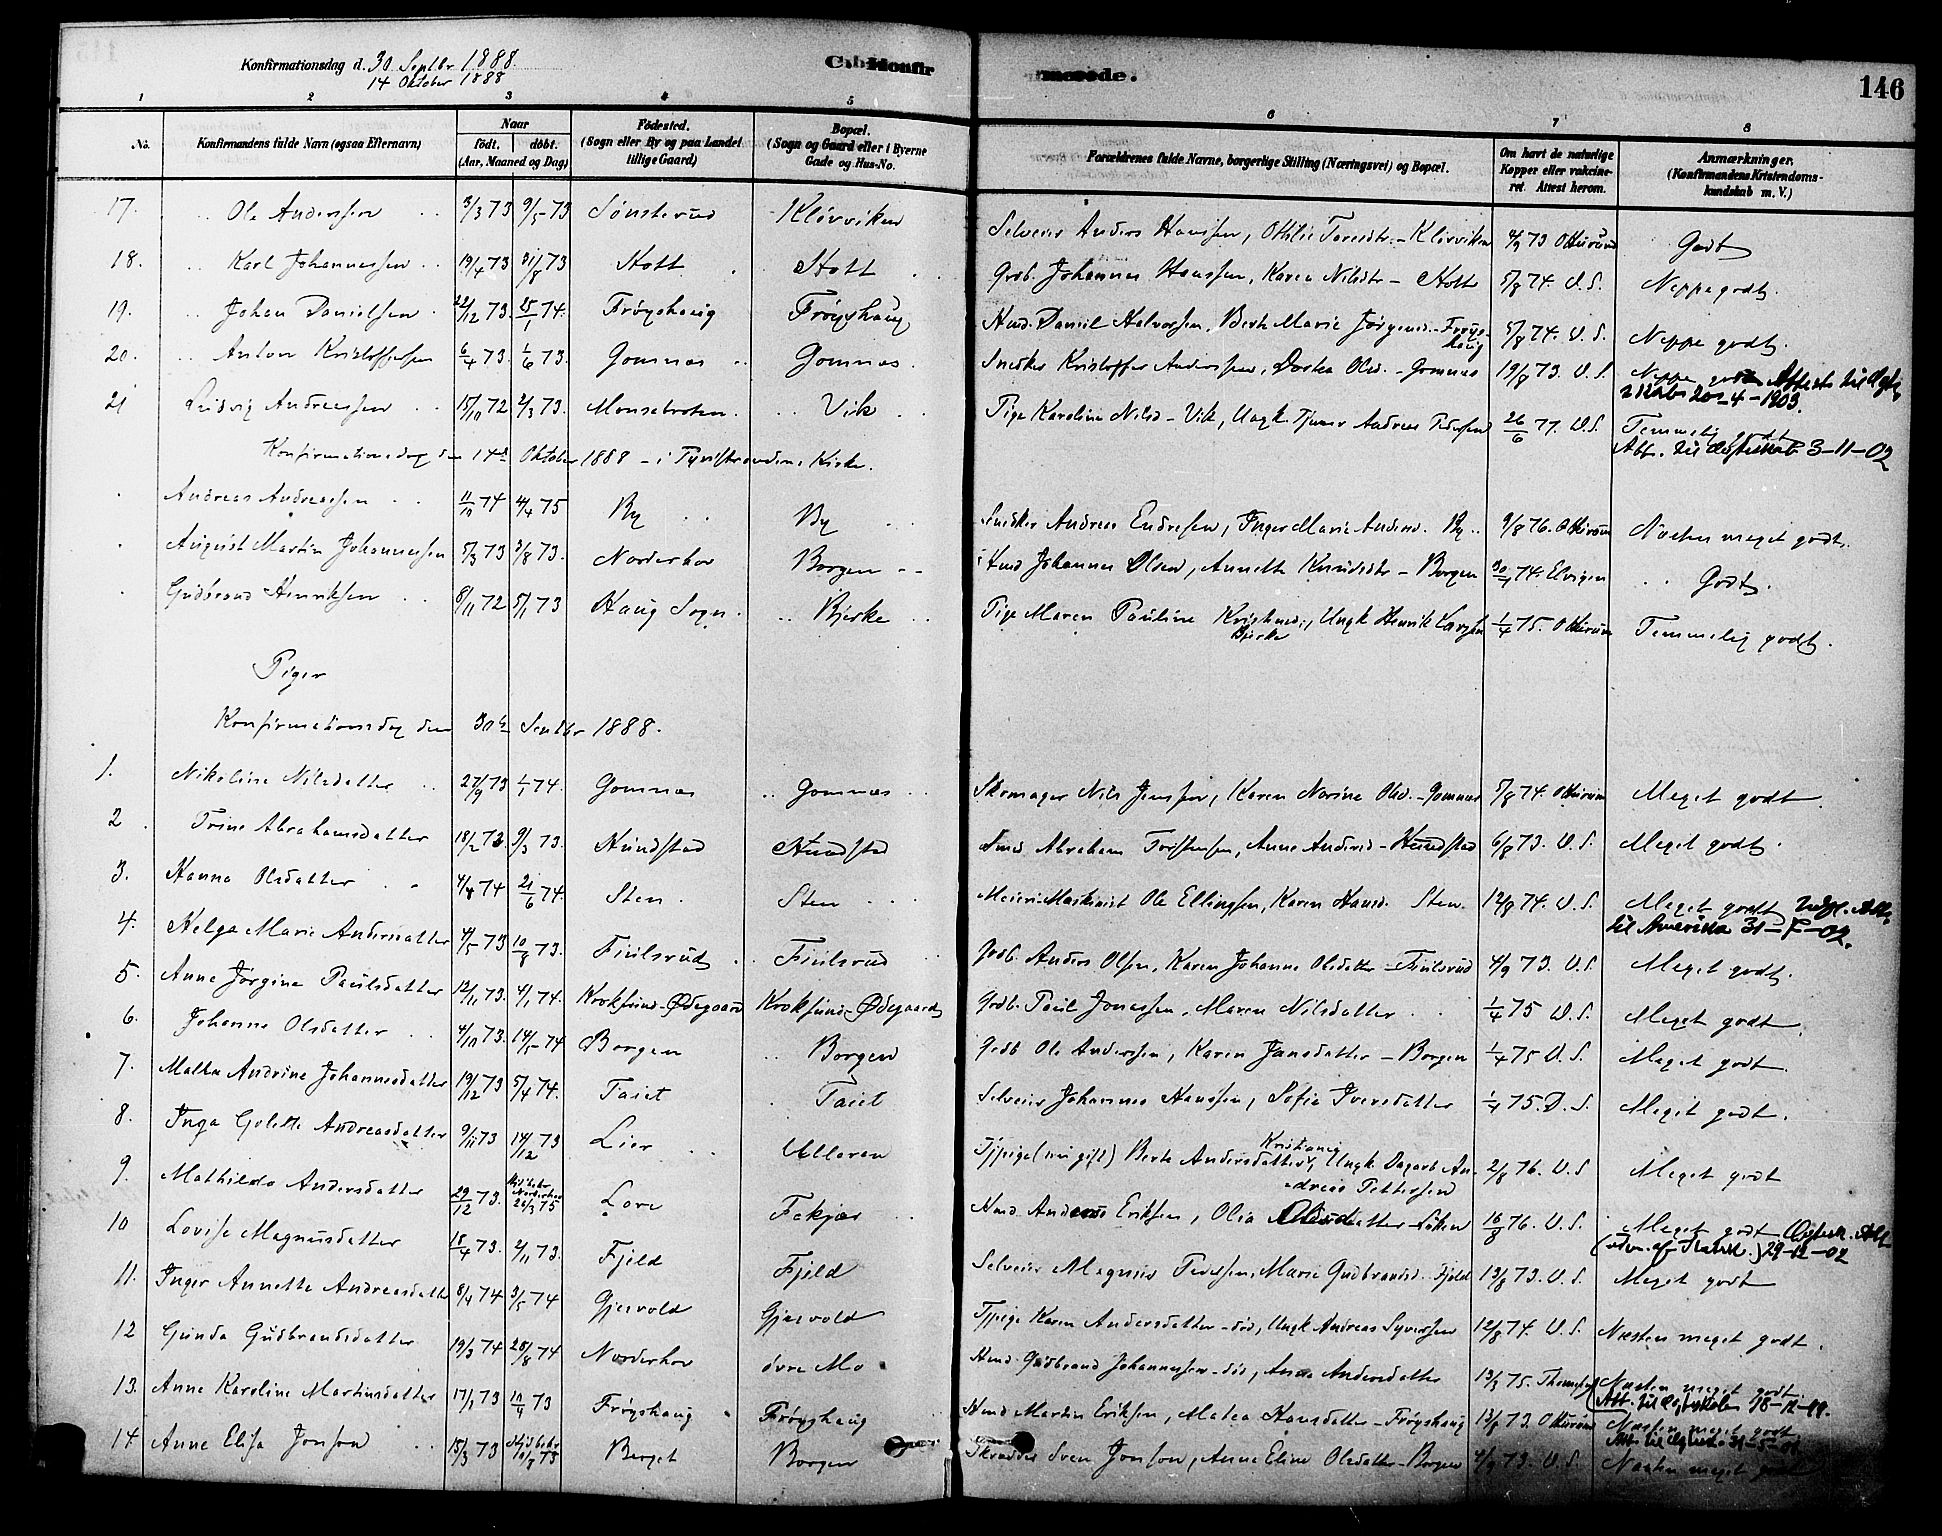 Konfirmationsdag d. 30 Septbr 1888.
14 Oktober 1888
C. Konfirmerede.
146
1 2 3 4 5 6 7 8
No. Konfirmandens fulde Navn (ogsaa Efternavn) Naar født. døbt. (Aar, Maaned og Dag) Fødested. (Sogn eller By og paa Landet tillige Gaard) Bopæl. (Sogn og Gaard eller i Byerne Gade og Hus-No. Forældrenes fulde Navne, borgerlige Stilling (Næringsvei) og Bopæl. Om havt de naturlige Kopper eller vaccineret. Attest herom. Anmærkninger. (Konfirmandens Kristendomskundskab m. V.)
17. Ole Anderssen 3/3 73 9/5 73 Sønsterud Kløvviken Selveier Anders Hanssen, Othilie Toresdtr. - Kløvviken 4/9 73 Godt
18. Karl Johannessen 19/4 73 31/8 73 Stott Stott Grdb. Johannes Hanssen, Karen Nilsdtr - Stott 5/8 74. V. S. Neppe godt.
19. Johan Danielsen 22/12 73. 25/1 74. Frøyshaug Frøyshaug Hmd. Daniel Halvorsen, Berte Marie Jørgensd. - Frøyshaug 5/8 74. V. S. Neppe godt.
20. Anton Kristoffersen 6/4 73. 1/6 73. Gomnæs Gomnæs. Snedker Kristoffer Anderssen, Dortea Olsd. - Gomnæs 19/8 73. V. S. Neppe godt Attest til
20-4-1903.
21 Ludvig Andreassen 15/10 72 2/3 73. Monsebroten. Vik Pige Karoline Nilsd - Vik, Ungk. Tjener Andreas Pedersen 26/6 77. V. S. Temmelig godt
Att. til Ægteskab 3-11-02
Konfirmationsdag den 14de Oktober 1888 - i Tyristrandens Kirke.
Andreas Andreassen 11/10 74 4/4 75 By By Snedker Andreas Endresen, Inger Marie Andersd. By 9/8 76. Næsten meget godt.
August Martin Johannessen 5/3 73 3/8 73. Norderhov Borgen Hmd Johannes Olsen, Annette Knudsdtr - Borgen 74. Elvigen Godt.
Gudbrand Henriksen 8/11 72 5/1 73 Haug Sogn. Bjerke Pige Maren Pauline Bjerke, Ungk Henrik Larsen 1/4 75. Temmelig godt.
Piger
Konfirmationsdag den 30te Septbr 1888.
1. Nikoline Nilsdatter 27/9 73 1/1 74. Gomnæs Gomnæs Skomager Nils Jenssen, Karen Norine Olsd. - Gomnæs 5/8 74. Meget godt.
2. Trine Abrahamsdatter 18/2 73. 9/3 73. Hundstad Hundstad Abraham Torstensen, Anne Andersd - Hundstad 6/8 73. V. S. Meget godt.
3. Hanna Olsdatter 4/4 74 21/6 74. Sten. Sten Meieri-Maskinist Ole Ellingsen, Karen Hansd. Sten. 12/8 74. V. S. Meget godt
til Amerika 31-7-02.
4. Helga Marie Andersdatter 4/5 73 10/8 73. Finlsrud Finlsrud Grdb. Anders Olsen, Karen Johanne Olsdatter - Finlsrud 4/9 73. V. S. Meget godt.
5. Anne Jørgine Paulsdatter 12/11 73. 4/1 74. Kroksund-Ødegaard Kroksund-Ødegaard Grdb. Paul Jonassen, Maren Nilsdatter 1/4 75 V. S. Meget godt.
6. Johanne Olsdatter 4/10 73. 14/5 74 Borgen Borgen Grdb Ole Anderssen, Karen Jansdatter - Borgen 1/4 75 V. S. Meget godt.
7. Malla Andrine Johannesdatter 19/12 73 5/4 74. Taiet Taiet Selveier Johannes Hanssen, Sofie Iversdatter 1/4 75. V. S. Meget godt.
8. Inga Golette Andreasdatter 9/11 73 14/12 73 Lier Ulleren Tjpige (nu gift) Berte Andersdatter, Kristiania, Ungk Dagarb. Andreas Pettersen 2/8 76. V. S Meget godt
9. Mathilde Andersdatter 29/12 73. Norderhov 26/3 75 Lore Fekjær Hmd Anders Eriksen, Olia Olausdatter 16/8 76. V. S. Meget godt
29-12-02
10 Lovise Magnusdatter 18/4 73. 2/11 73. Fjeld Fjeld Selveier Magnus Pedersen, Marie Gudbrandsd. Fjeld 13/8 73. V. S. Meget godt
11. Inger Annette Andreasdatter 8/4 74 3/5 74 Gjesvold Gjesvold Tjpige Karen Andersdatter - død, Ungk Andreas Syversen 12/8 74. V. S. Næsten meget godt.
12 Gunda Gudbrandsdatter 19/3 74 28/8 74 Norderhov øvre Mo Hmd. Gudbrand Johannessen - død, Anne Andersdatter 13/3 75. Næsten meget godt.
13. Anne Karoline Martinsdatter 17/1 73 73 Frøyshaug Frøyshaug Hmd Martin Eriksen, Matea Hansdatter - Frøyshaug 13/8 73. Næsten meget godt.
14 Anne Elisa Jonson 15/3 73 73 Berget Borgen Skrædder Sven Jonson, Anne Eline Olsdatter - Borgen 4/9 73. V. S. Næsten meget godt